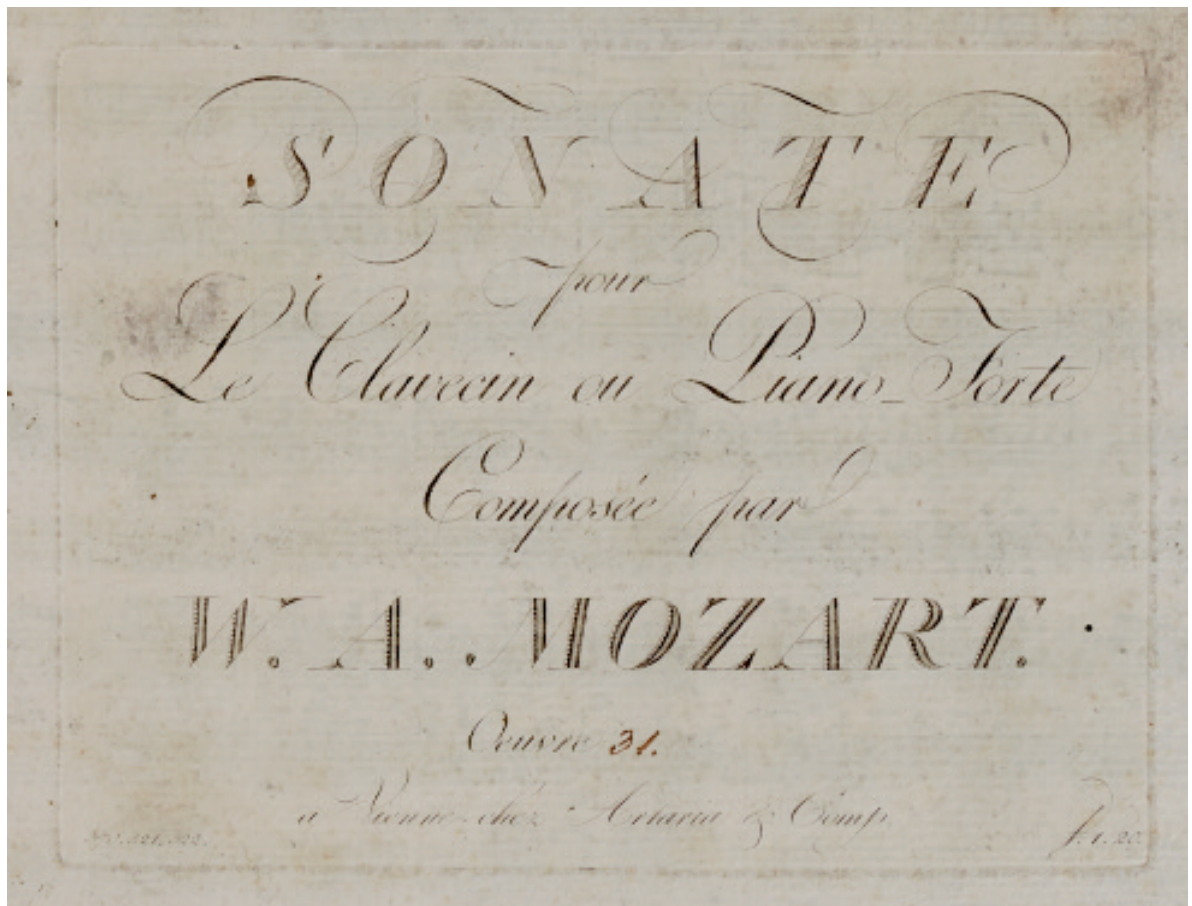 SONATE
pour
Le Clavecin ou Piano-Forte
Composée par
W. A. MOZART.
Oeuvre 31.
a Vienne chez Artaria & Comp.
f. 1. 20.